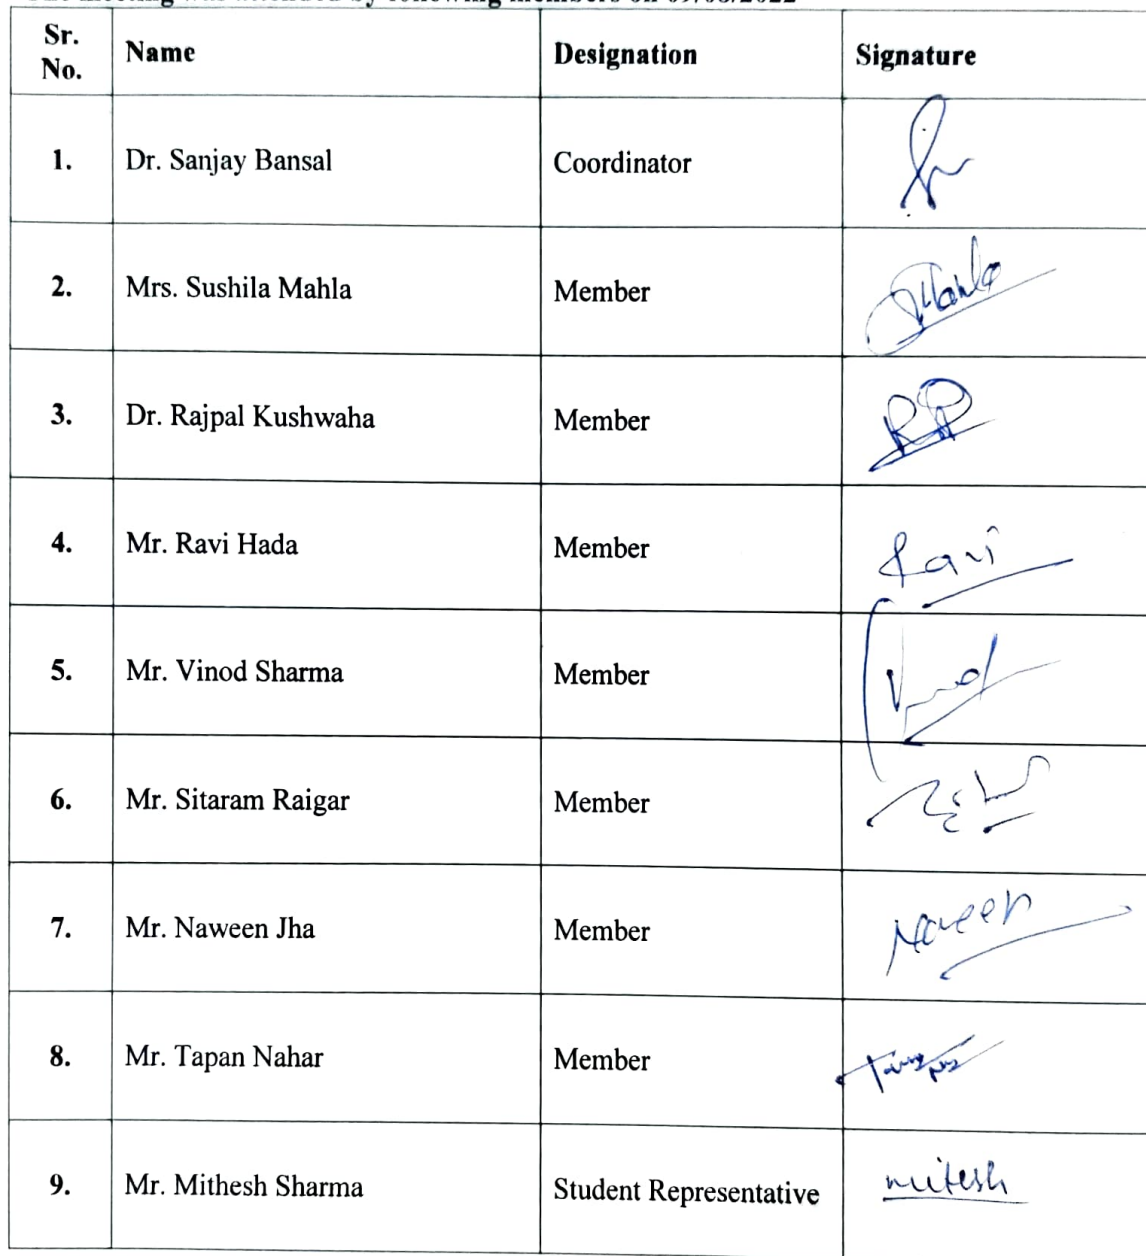 The meeting was attended by following members on 09/08/2022
Sr. No. Name Designation Signature
1. Dr. Sanjay Bansal Coordinator
2. Mrs. Sushila Mahla Member
3. Dr. Rajpal Kushwaha Member
4. Mr. Ravi Hada Member Ravi
5. Mr. Vinod Sharma Member Vinod
6. Mr. Sitaram Raigar Member
7. Mr. Naween Jha Member Naveen
8. Mr. Tapan Nahar Member
9. Mr. Mithesh Sharma Student Representative mitesh